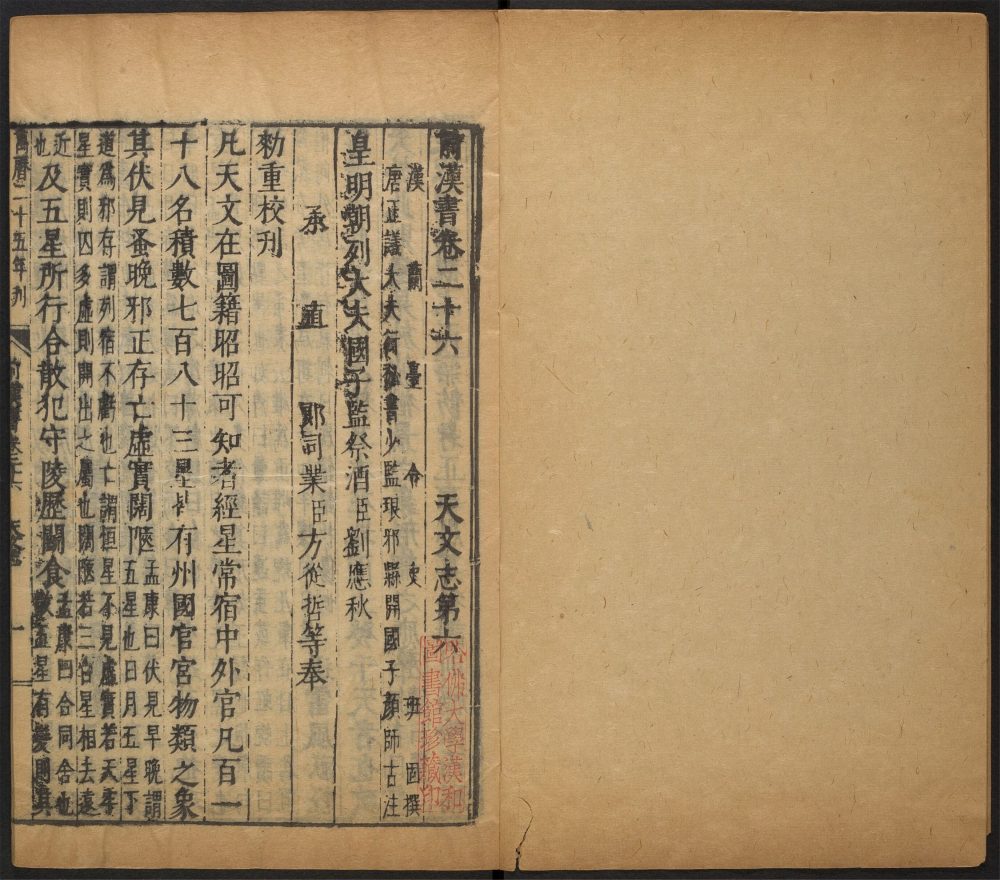 前漢書卷二十六　天文志第六
漢蘭臺令史班固撰
唐正議大夫行秘書少監琅邪縣開國子顏師古注
皇明朝列大夫國子監祭酒臣劉應秋
承直郎司業臣方從哲等奉
勑重校刊
凡天文在圖籍昭昭可知者經星常宿中外官凡百一
十八名積數七百八十三星皆有州國官宮物類之象
其伏見蚤晚邪正存亡虛實闊陿孟康曰伏見早晚謂
五星也日月五星下
道爲邪存謂列宿不虧也亡謂恒星不見虛實若天牢
星實則囚多虛則開出之屬也闊陿若三台星相去遠
近
也及五星所行合散犯守陵歷鬬食孟康曰合同舍也
散五星有變則其
萬曆二十五年刊
前漢書卷二十六
天文志
一
哈佛大學漢和
圖書館珍藏印